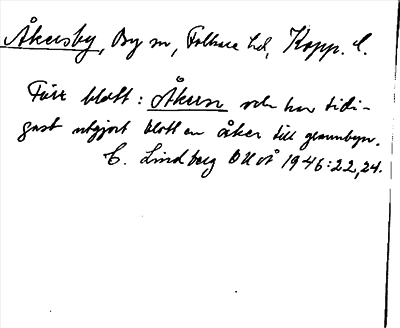 Åkersby, By sn, Folkare hd, Kopp. l.
Förr blott: Åkern och har tidi-
gast utgjort blott en åker till grannbyn.
C. Lindberg OUÅ 1946:22,24.